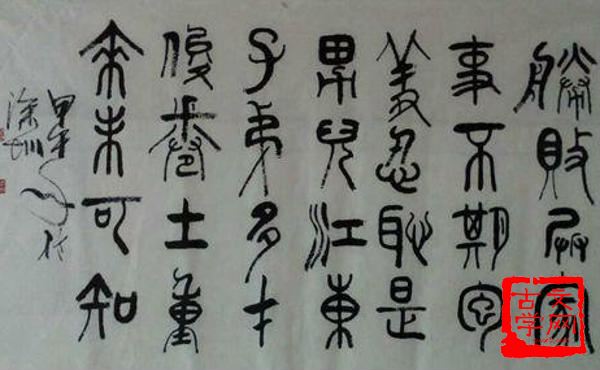 勝敗兵家
事不期包
羞忍恥是
男兒江東
子弟多才
俊卷土重
來未可知
甲午
深圳
古文
学网